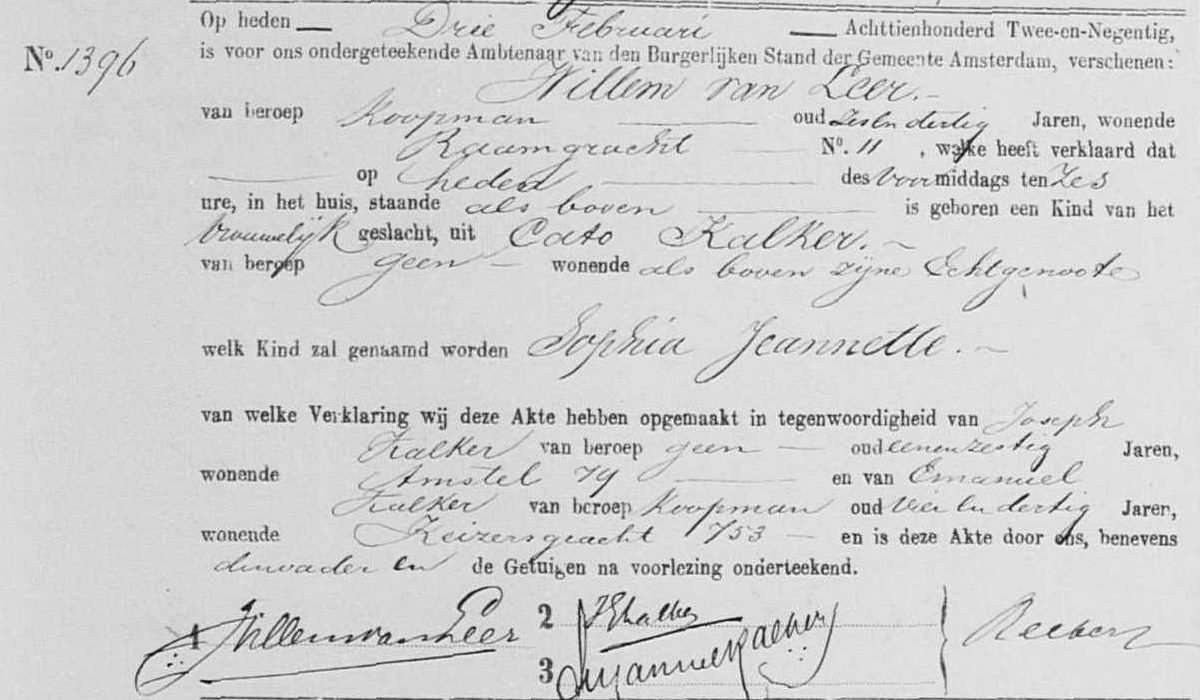 Op heden Drie Februari Achttienhonderd Twee-en-Negentig,
No. 1396 is voor ons ondergeteekende Ambtenaar van den Burgerlijken Stand der Gemeente Amsterdam, verschenen:
Willem van Leer.
van beroep Koopman oud zes en dertig Jaren, wonende
Raamgracht No. 11, welke heeft verklaard dat
op heden des Voormiddags ten Zes
ure, in het huis, staande als boven is geboren een Kind van het
Vrouwelijk geslacht, uit Cato Kalker.
van beroep geen wonende als boven zijne Echtgenoote
welk Kind zal genaamd worden Sophia Jeannette.
van welke Verklaring wij deze Akte hebben opgemaakt in tegenwoordigheid van Joseph
Kalker van beroep geen oud eenenzestig Jaren,
wonende Amstel 79 en van Emanuel
Kalker van beroep Koopman oud Vier en dertig Jaren,
wonende Keizersgracht 753 en is deze Akte door ons, benevens
den vader en de Getuigen na voorlezing onderteekend.
1 Willem van Leer
2 Kalker
3 Emanuel Kalker